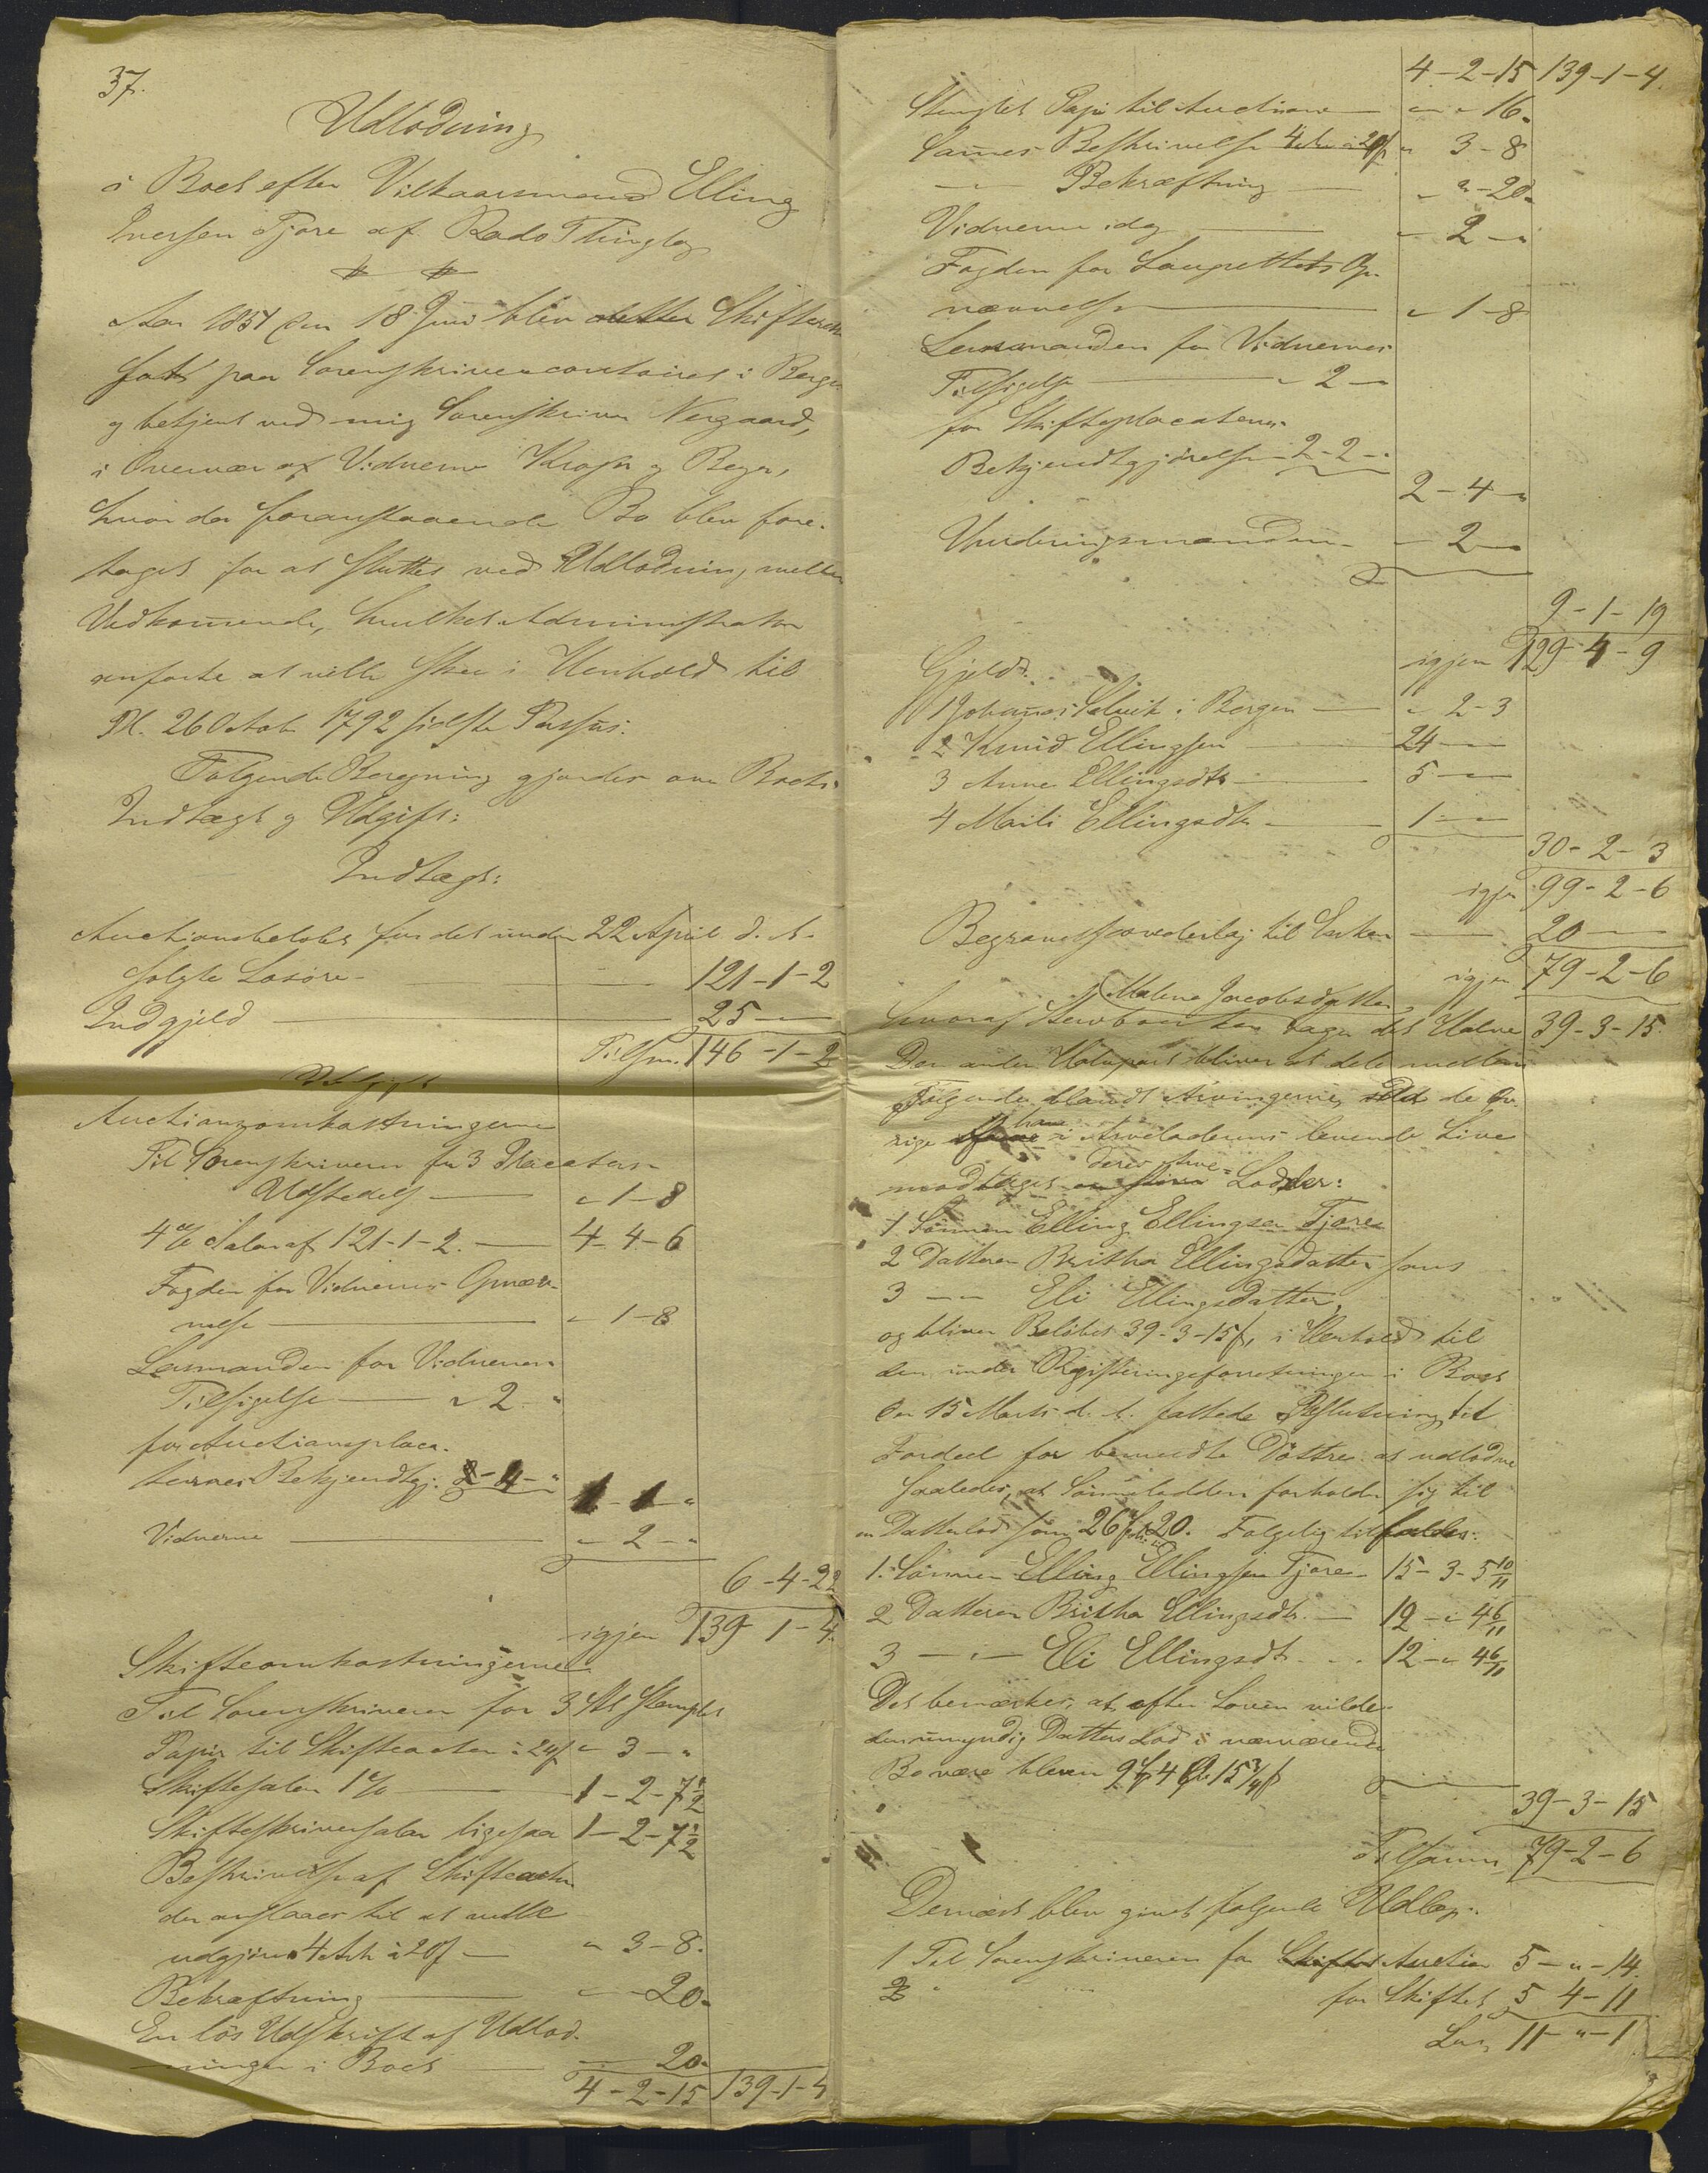 37.
Udlodning
i Boet efter Vilkaarsmand Elling
Iversen Tjore af Radø Thinglag
Aar 1851 den 18 Juni blev Skifteret
sat paa Sorenskrivercontoiret i Bergen
og betjent ved mig Sorenskriver Nergaard,
i Overvær af Vidnerne Krohn og Beyer,
hvor da foranstaaende Bo blev fore-
taget for at sluttes ved Udlodning mellem
Vedkommende, hvilket Administrator
anførte at ville skee i Henhold til
Pl. 26 Octob 1792 sidste Passus:
Følgende Beregning gjordes over Boets
Indtægt og Udgift:
Indtægt:
Auctionsbeløbet for det under 22 April d. A.
solgte Løsøre - 121-1-2
Indgjeld 25 - -
Tilsm. 146-1-2
Udgift
Auctionsomkostningerne
Til Sorenskriveren for 3 Placaters
Udstedelse " 1-8
4 % Salær af 121-1-2. 4-4-6
Fogden for Vidnernes Opnæv-
nelse " 1-8
Lensmanden for Vidnernes
Tilsigelse " 2 - "
for Auctionsplaca-
ternes Bekjendtgj:
1-1-"
Vidnerne " 2 - "
6-4-22
igjen 139-1-4
Skifteomkostningerne
Til Sorenskriveren for 3 Ark stemplet
Papir til Skifteacten à 24 s " 3 - "
Skiftesalær 1 % 1-2-7 1/2
Skifteskriversalær ligesaa 1-2-7 1/2
Beskrivelse af Skifteacten
der anslaaes til at ville
udgjøre 4 Ark à 20 s " 3-8.
Bekræftning " - 20.
En løs Udskrift af Udlod-
ningen i Boet 20.
4-2-15 139-1-4
4-2-15 139-1-4.
Stemplet Papir til Auctionen " " 16.
Sammes Beskrivelse 4 Ark à 20 s " 3-8
- " - Bekræftning " " - 20.
Vidnerne idag " 2 - "
Fogden for Laugrettets Op-
nævnelse " 1-8
Lensmanden for Vidnernes
Tilsigelse " 2 - "
for Skifteplacaternes
Bekjendtgjørelse 2-2-"
2-4-"
Vurderingsmændene " 2 - "
9-1-19
igjen 129-4-9
Gjeld.
1 Johannes i Bergen " 2-3
2 Knud Ellingsen 24 - -
3 Anna Ellingsdtr 5 - -
4 Marite Ellingsdtr 1 - -
30-2-3
igjen 99-2-6
Begravelsesvederlag til Enken 20 - -
igjen 79-2-6
Malene Jacobsdatter
hvoraf Stervboenken tager det Halve 39-3-15.
Den anden Halvpart bliver at dele mellem
Følgende blandt Arvingerne, da de Øv-
rige have i Arveladerens levende Live
modtaget deres Arve- Lodder:
1 Sønnen Elling Ellingsen Tjore
2 Datteren Britha Ellingsdatter sams
3 - " - Eli Ellingsdatter,
og bliver Beløbet 39-3-15 s, i Henhold til
den under Registreringsforretningen i Boet
den 15 Marts d. A. fattede Beslutning til
Fordeel for bemeldte Døttre at udlodne
saaledes, at Sønnelodden forholder sig til
en Datterlod som 26 til 20. Følgelig tilfalder:
1. Sønnen Elling Ellingsen Tjore 15-3-5 10/11
2 Datteren Britha Ellingsdtr. 12 - " 4 6/11
3 - " - Eli Ellingsdtr. 12 - " 4 6/11
Det bemærkes, at efter Loven vilde
den umyndig Datters Lod i nærværende
Bo være bleven 9 4 15 3/4 s
39-3-15
Tilsamm 79-2-6
Dernæst blev givet følgende Udlæg:
1 Til Sorenskriveren for Auction 5 - " - 14.
2 " for Skiftet 5 4-11
Lar 11 - " - 1